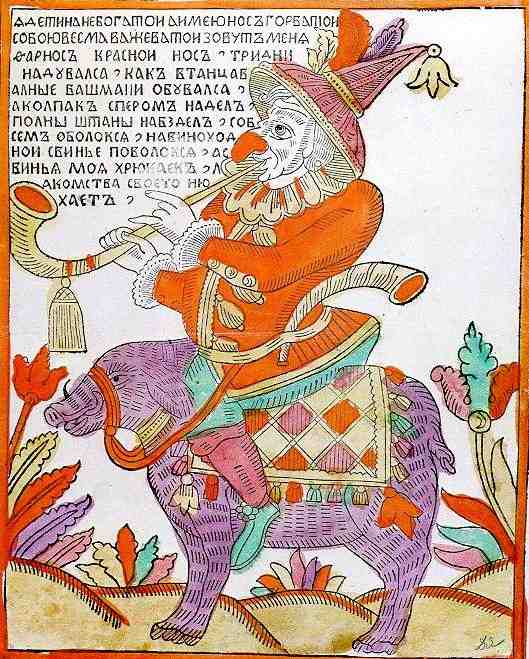 Я ДЕТИНА НЕБОГАТОИ А ИМЕЮ НОСЪ ГОРБАТОИ
СОБОЮ ВЕСМА ВАЖЕВАТОИ ЗОВУТЪ МЕНЯ
ѲАРНОСЪ КРАСНОИ НОСЪ ? ТРИ ДНИ
НАДУВАЛСА ? КАКЪ В ТАНЦАВ
АЛНЫЕ БАШМАКИ ОБУВАЛСА ?
А КОЛПАК СПЕРОМЪ НАДЕЛЪ ?
ПОЛНЫ ШТАНЫ НАБЗДЕЛЪ ? СОВ
СЕМЪ ОБОЛОКСЯ ? НА ВИНОХОД
НОИ СВИНЬЕ ПОВОЛОКСЯ ? А С
ВИНЬЯ МОЯ ХРЮКАЕТЪ ? Л
АКОМСТВА СВОЕГО НЮ
ХАЕТЪ ?